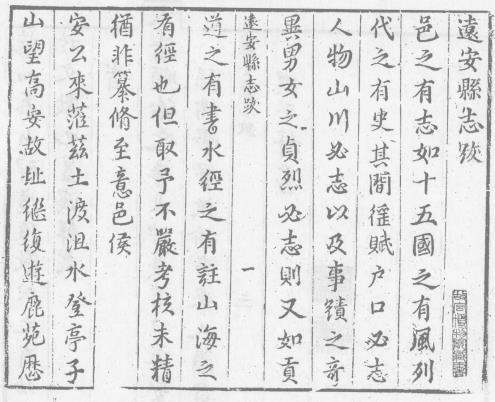 遠安縣志跋
邑之有志如十五國之有風列
代之有史其間徭賦户口必志
人物山川必志以及事蹟之奇
異男女之貞烈必志則又如貢
遠安縣志跋
一
道之有書水經之有註山海之
有經也但取予不嚴考核未精
猶非纂脩至意邑侯
安公來蒞兹土渡沮水登亭子
山望高安故址繼復遊鹿苑歷